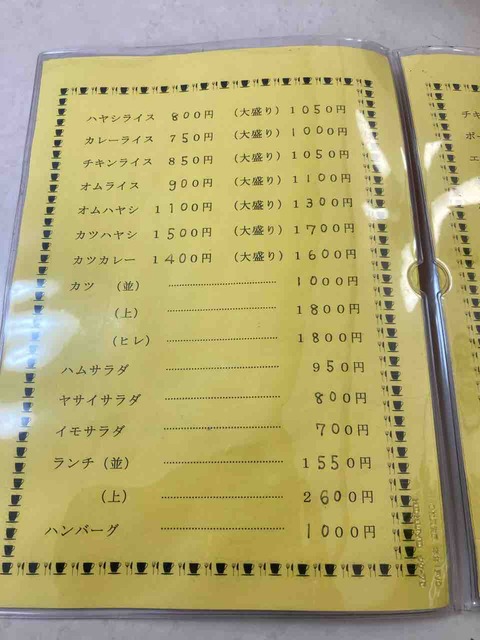 ハヤシライス 800円 (大盛り) 1050円
カレーライス 750円 (大盛り) 1000円
チキンライス 850円 (大盛り) 1050円
オムライス 900円 (大盛り) 1100円
オムハヤシ 1100円 (大盛り) 1300円
カツハヤシ 1500円 (大盛り) 1700円
カツカレー 1400円 (大盛り) 1600円
カツ (並) 1000円
(上) 1800円
(ヒレ) 1800円
ハムサラダ 950円
ヤサイサラダ 800円
イモサラダ 700円
ランチ (並) 1550円
(上) 2600円
ハンバーグ 1000円
チキ
ポー
エ